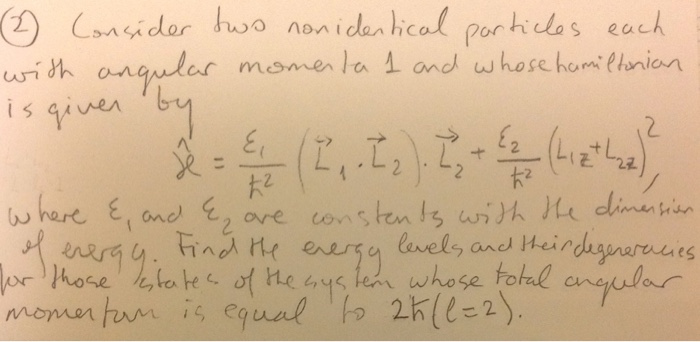 ② Consider two nonidentical particles each
with angular momenta 1 and whose hamiltonian
is given by
Ĥ = ε₁/ħ² (L⃗₁ . L⃗₂) . L⃗₂ + ε₂/ħ² (L₁z + L₂z)²,
where ε₁ and ε₂ are constants with the dimension
of energy. Find the energy levels and their degeneracies
for those states of the system whose total angular
momentum is equal to 2ħ (l=2).